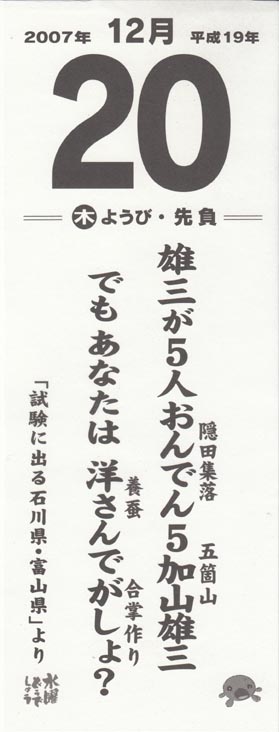 2007年 12月 平成19年
20
木ようび・先負
雄三が5人おんでん5加山雄三
隠田集落 五箇山
でもあなたは 洋さんでがしょ？
養蚕 合掌作り
「試験に出る石川県・富山県」より
水曜どうでしょう